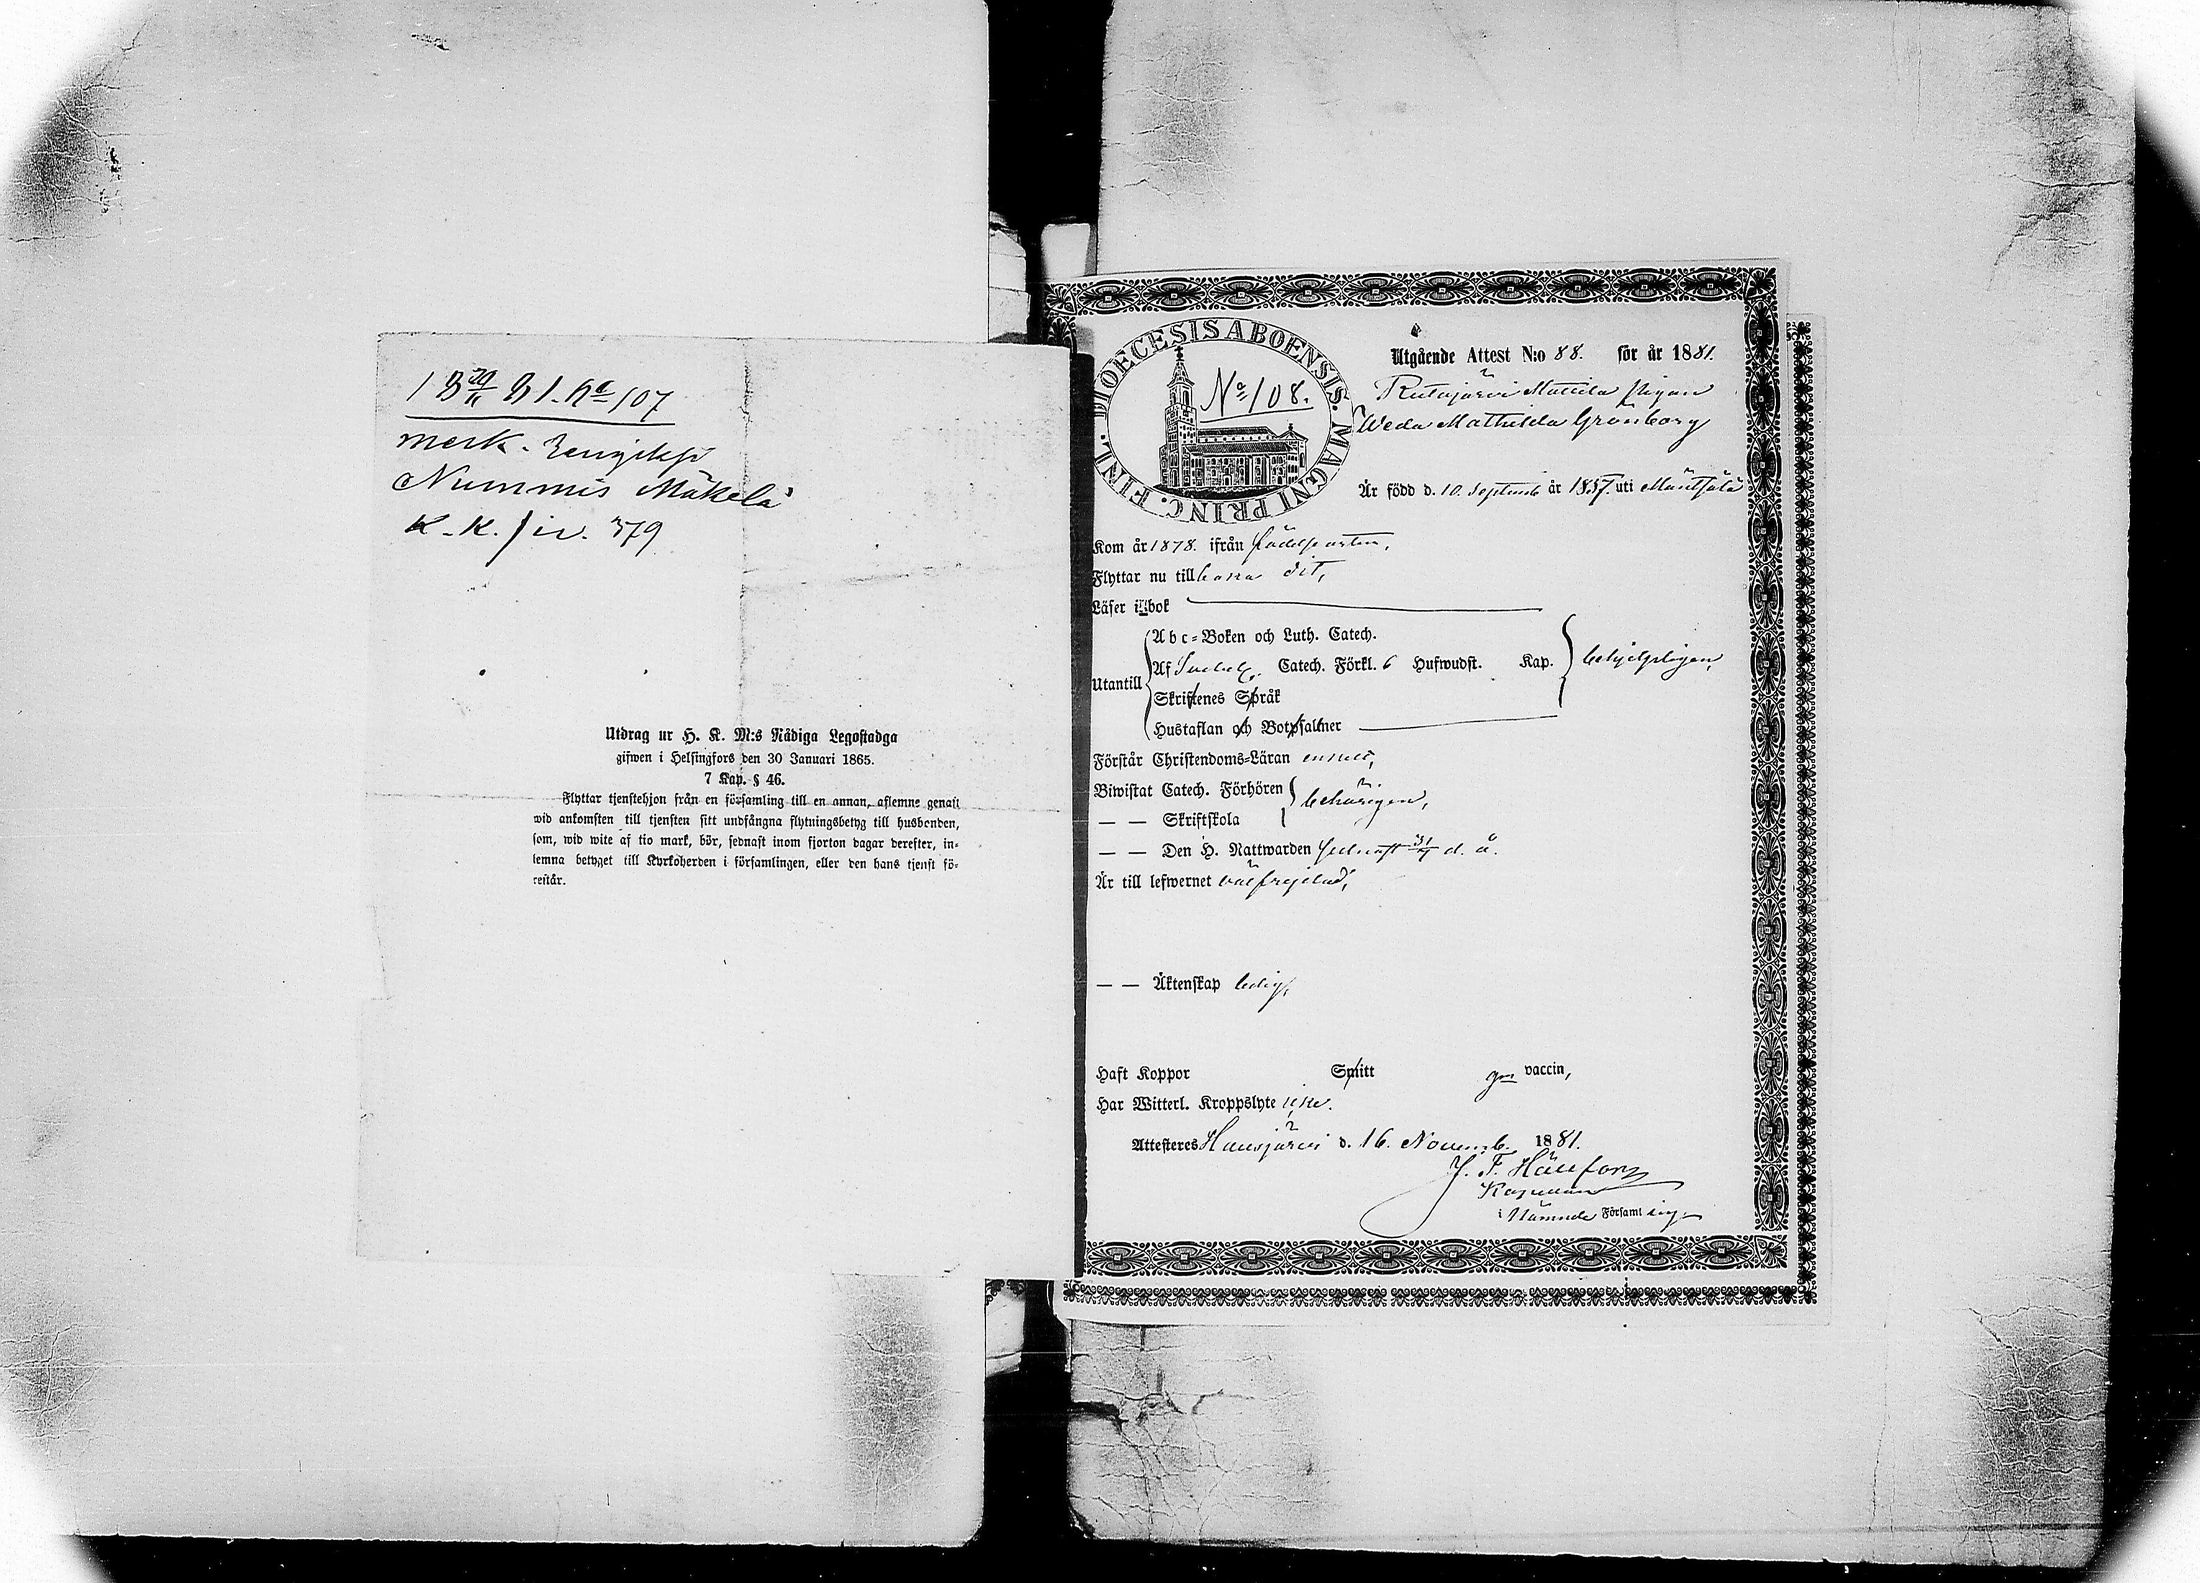 18 30/11 81. No 107
merk.
Nummis Mäkelä
K.K. siv. 379
Utdrag ur H. K. M:s Nådiga Legostadga
gifwen i Helsingfors den 30 Januari 1865.
7 Kap. § 46.
Flyttar tjenstehjon från en församling till en annan, aflemne genast
wid ankomsten till tjensten sitt undfångna flyttningsbetyg till husbonden,
som, wid wite af tio mark, bör, sednast inom fjorton dagar derefter, in-
lemna betyget till Kyrkoherden i församlingen, eller den hans tjenst fö-
restår.
DIOECESIS ABOENSIS. MAGNI PRINC. FINL.
No 108.
Utgående Attest N:o 88. för år 1881.
Rutajärvi Mattila pigan
Weda Mathilda Grönborg
Är född d. 10. Septemb år 1857. uti Mäntsälä
Kom år 1878. ifrån födelseorten,
Flyttar nu till bana dit,
Läser i bok
Utantill
Abc-Boken och Luth. Catech.
Af Svebel. Catech. Förkl. 6 Hufwudst. Kap.
behjelpligen,
Skriftenes Språk
Hustaflan och Botpsalmer
Förstår Christendoms-Läran enkelt,
Biwistat Catech. Förhören
behörigen,
— — Skriftskola
— — Den H. Nattwarden sednast 31/7 d. å.
Är till lefwernet välfrejdad,
— — Äktenskap ledig,
Haft Koppor Smitt gm vaccin,
Har Witterl. Kroppslyte icke.
Attesteres Hausjärvi d. 16. Novemb. 1881.
J. F. Hällfors
Kapellan
i Nämnde Församling.